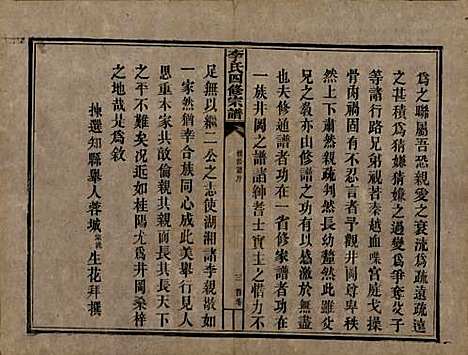 為之聯屬吾恐親愛之衰流為疏遠疏遠
之甚積為猜嫌猜嫌之過變為爭奪父子
等諸行路兄弟視若秦越血喋宮庭戈操
骨肉禍固有不忍言者乎觀井岡尊卑秩
然上下肅然親疏判然長幼釐然此雖疏
兄之教亦由修譜之功有以感激於無盡
也夫修通譜者功在一省修家譜者功在
一族井岡之譜諸紳耆士實主之惜力不
李氏四修宗譜
三
足無以繼二公之志使湖湘諸李親敬如
一家然猶幸合族同心成此美舉行見人
恩重木家共敦倫親其親長其長天下
之平不難已矣如桂陽尤為井岡桑梓
之地哉是為敘
揀選知縣舉人蓉城生花拜撰